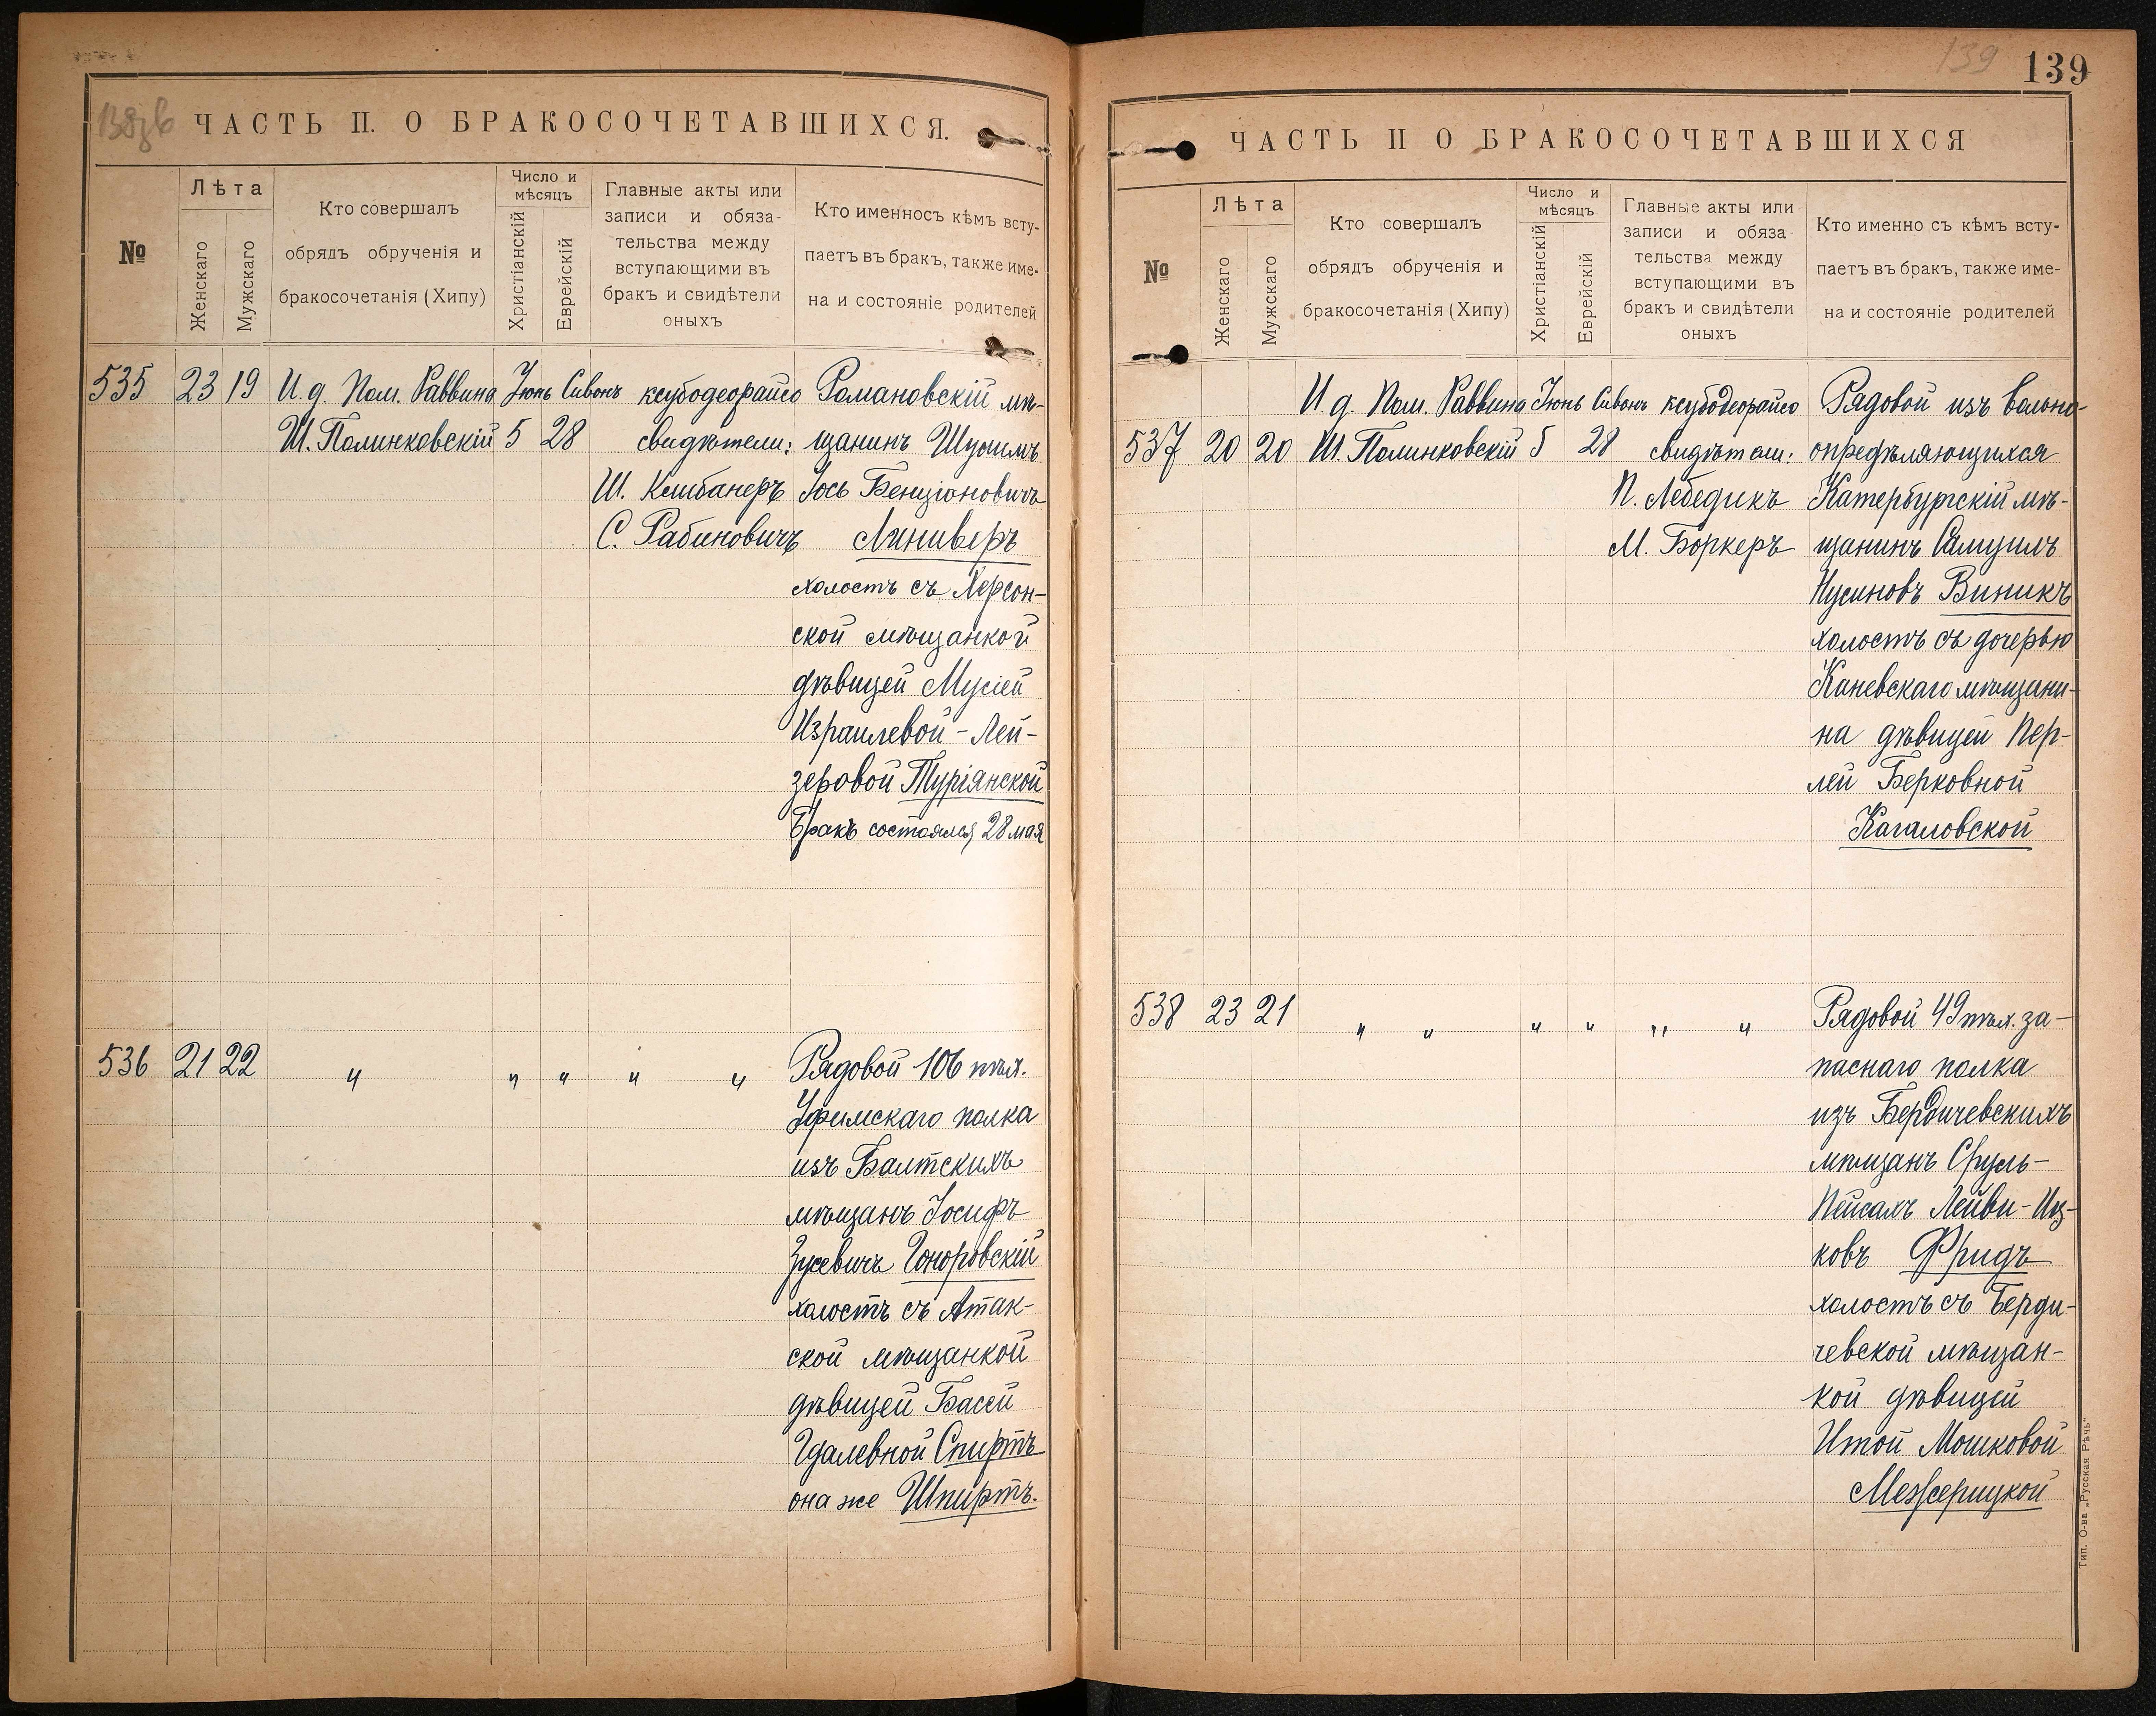 138 зв
ЧАСТЬ II. О БРАКОСОЧЕТАВШИХСЯ.
№
Лѣта
Женскаго
Мужскаго
Кто совершалъ
обрядъ обрученія и
бракосочетанія (Хипу)
Число и
мѣсяцъ
Христіанскій
Еврейскій
Главные акты или
записи и обяза-
тельства между
вступающими въ
бракъ и свидѣтели
оныхъ
Кто именносъ кѣмъ всту-
паетъ въ бракъ, также име-
на и состояніе родителей
535 23 19 И. д. Пом. Раввина Іюнь Сивонъ ксубодеорайсо Романовскій мѣ-
Ш. Полинковскій 5 28 свидѣтели: щанинъ Шулимъ
Ш. Клибанеръ Іось Бенціоновичъ
С. Рабиновичъ Линиверъ
холостъ съ Херсон-
ской мѣщанкой
дѣвицей Мусіей
Израилевой-Лей-
зеровой Туріянской
Бракъ состоялся 28 мая
536 21 22 " " " " " Рядовой 106 пѣх.
Уфимскаго полка
изъ Балтскихъ
мѣщанъ Іосифъ
Зусевичъ Гоноровскій
холостъ съ Атак-
ской мѣщанкой
дѣвицей Басей
Гдалевной Спиртъ
она же Шпиртъ.
139
139
ЧАСТЬ II О БРАКОСОЧЕТАВШИХСЯ
№
Лѣта
Женскаго
Мужскаго
Кто совершалъ
обрядъ обрученія и
бракосочетанія (Хипу)
Число и
мѣсяцъ
Христіанскій
Еврейскій
Главные акты или
записи и обяза-
тельства между
вступающими въ
бракъ и свидѣтели
оныхъ
Кто именно съ кѣмъ всту-
паетъ въ бракъ, также име-
на и состояніе родителей
И д. Пом. Раввина Іюнь Сивонъ ксубодеорайсо Рядовой изъ вольно-
537 20 20 Ш. Полинковскій 5 28 свидѣтели: опредѣляющихся
П. Лебедикъ Катербургскій мѣ-
М. Боркеръ щанинъ Самуилъ
Нусиновъ Виникъ
холостъ съ дочерью
Каневскаго мѣщани-
на дѣвицей Пер-
лей Берковной
Кагаловской
538 23 21 " " " " " " Рядовой 49 пѣх. за-
паснаго полка
изъ Бердичевскихъ
мѣщанъ Сруль-
Пейсахъ Лейви-Иц-
ковъ Фридъ
холостъ съ Берди-
чевской мѣщан-
кой дѣвицей
Итой Мошковой
Межерицкой
Тип. О-ва „Русская Рѣчь“